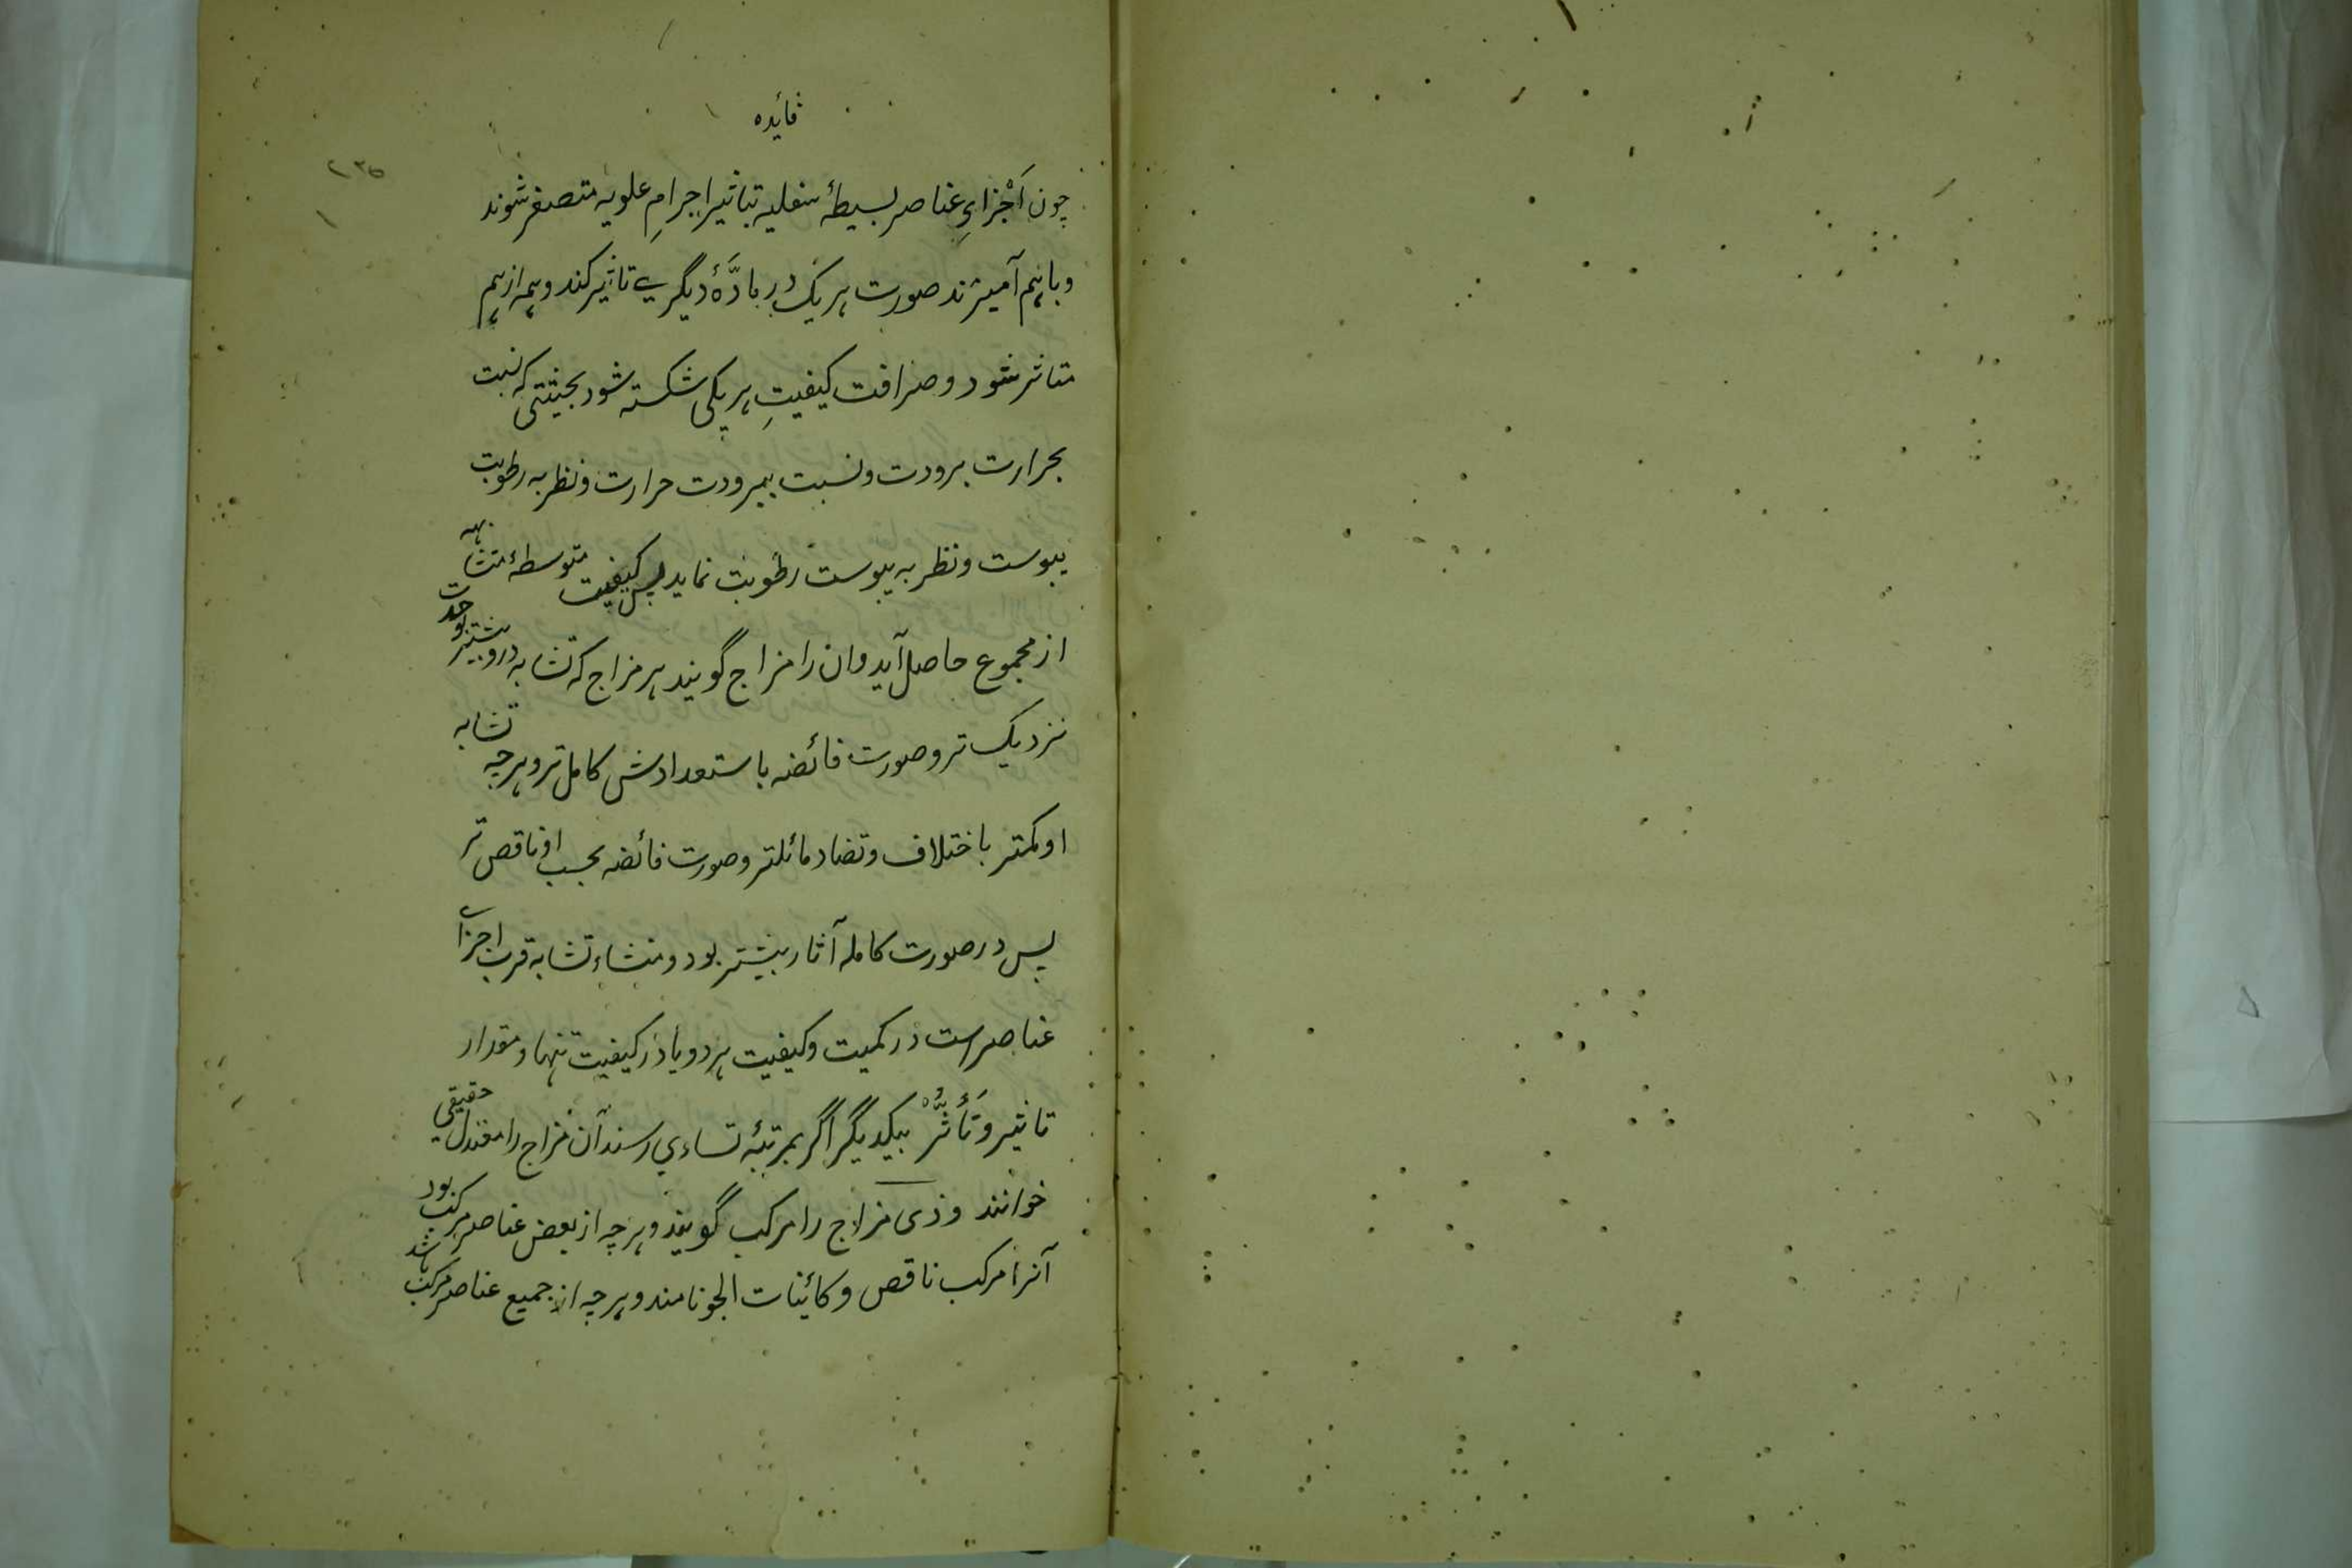 فائده
۲۳۵
چون اَجْزایِ عناصر بسیطهٔ سفلیه بتاثیر اجرامِ علویه متصغر شوند
و باہم آمیزند صورت ہر یک در مادَّهٔ دیگری تاثیر کند و ہمہ از ہم
متاثر شود و صرافت کیفیتِ ہر یکی شکستہ شود بحیثیتی کہ نسبت
بحرارت برودت و نسبت ببرودت حرارت و نظر بہ رطوبت
یبوست و نظر بہ یبوست رطوبت نماید پس کیفیت متوسطهٔ متشابہہ
از مجموع حاصل آید و ان را مزاج گویند ہر مزاج کہ تشابہ درو بیشتر بوحدت
نزدیک تر و صورت فائضہ باستعدادش کامل تر و ہر چہ تشابہ
او کمتر باختلاف و تضاد مائلتر و صورت فائضہ بحسب او ناقص تر
پس در صورت کاملہ آثار بیشتر بود و منشاء تشابہ قرب اجزای
عناصر است در کمیت و کیفیت ہر دو یا در کیفیت تنہا و مقدار
تاثیر و تَأَثُّرْ بیکدیگر اگر بمرتبهٔ تساوی رسند آن مزاج را معتدل حقیقی
خوانند و ذی مزاج را مرکب گویند و ہر چہ از بعض عناصر مرکب بود
آنرا مرکب ناقص و کائینات الجو نامند و ہر چہ از جمیع عناصر مرکب باشد